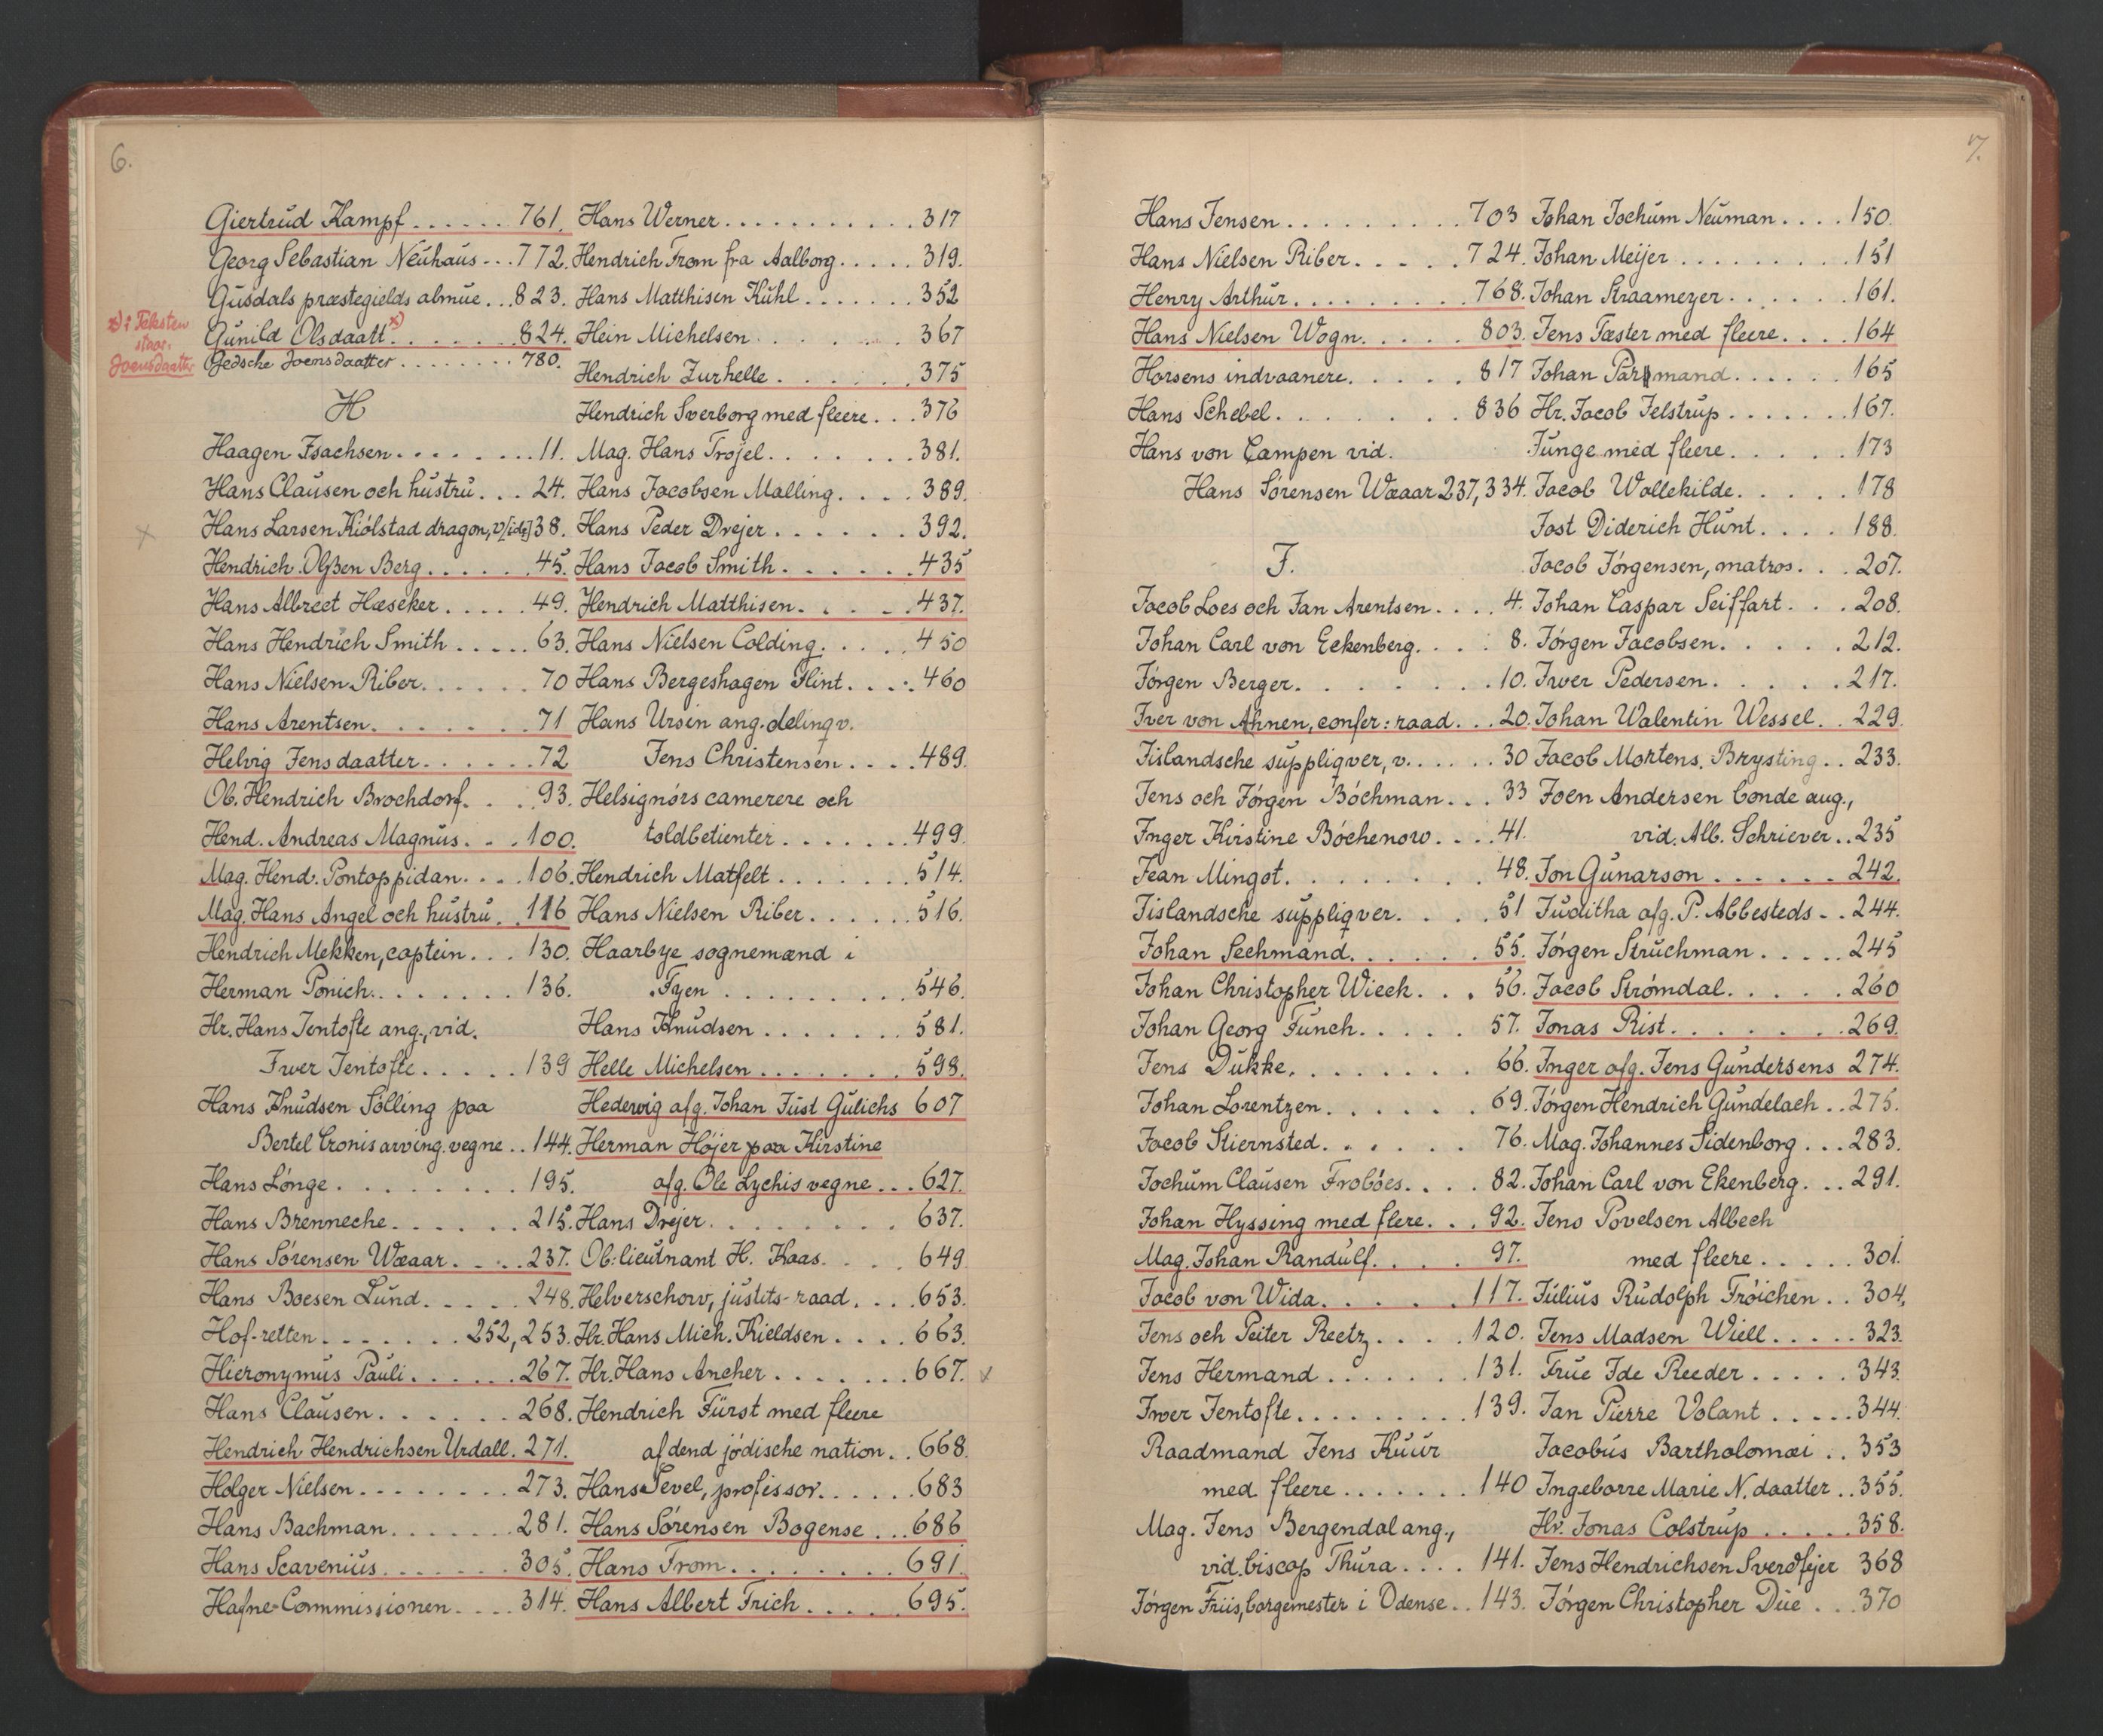 6.
Giertrud Kampf . . . . . . 761.
Georg Sebastian Neuhaus . . . 772.
Gusdals præstegields almue . . . 823.
Gunild Olsdaatt x) . . . . . . . 824.
x) i Teksten
staar:
Joensdaatter
Gedsche Joensdaatter . . . . . . . . 780.
H
Haagen Isachsen . . . . . . . . 11.
Hans Clausen och hustru . . . 24.
Hans Larsen Kiólstad dragon, v[ide] 38.
Hendrich Olßen Berg . . . . . . 45.
Hans Albrect Hæseker . . . . . 49.
Hans Hendrich Smith . . . . . 63.
Hans Nielsen Riber . . . . . . 70
Hans Arentsen . . . . . . . . 71
Helvig Jensdaatter . . . . . . . 72
Ob. Hendrich Brochdorf . . . 93.
Hend. Andreas Magnus . . . 100.
Mag. Hend. Pontoppidan . . . . 106.
Mag. Hans Angel och hustru . 116
Hendrich Mekken, captein . . . 130.
Herman Ponich . . . . . . . . 136.
Hr. Hans Jentofte ang., vid.
Iwer Jentofte . . . . . 139
Hans Knudsen Sólling paa
Bertel Cronis arving. vegne . . 144.
Hans Lónge . . . . . . . . . 195.
Hans Brenneche . . . . . . 215.
Hans Sórensen Wæaar . . . . 237.
Hans Boesen Lund . . . . . 248.
Hof-retten . . . . . . . 252, 253.
Hieronymus Pauli . . . . . . 267.
Hans Clausen . . . . . . 268.
Hendrich Hendrichsen Urdall . 271.
Holger Nielsen . . . . . . . . 273.
Hans Bachman . . . . . . . 281.
Hans Scavenius . . . . . . . 305.
Hafne-Commissionen . . . . 314.
Hans Werner . . . . . . . . . . . 317
Hendrich From fra Aalborg . . . . . 319.
Hans Matthisen Kuhl . . . . . . . 352
Hein Michelsen . . . . . . . 367
Hendrich Zurhelle . . . . . . . 375
Hendrich Sverborg med fleere . . . 376
Mag. Hans Trojel . . . . . . . . 381.
Hans Jacobsen Malling . . . . 389.
Hans Peder Drejer . . . . . . . 392.
Hans Jacob Smith . . . . . . . 435
Hendrich Matthisen . . . . . 437.
Hans Nielsen Colding . . . . . 450
Hans Bergeshagen Flint . . . . 460
Hans Ursin ang. delinqv.
Jens Christensen . . . . 489.
Helsignórs camerere och
toldbetienter . . . . . . . 499.
Hendrich Matfelt . . . . . . . 514.
Hans Nielsen Riber . . . . . . 516.
Haarbye sognemænd i
Fyen . . . . . . . . . . 546.
Hans Knudsen . . . . . . . . 581.
Helle Michelsen . . . . . . . . 598.
Hedewig afg. Johan Just Gulichs 607
Herman Hójer paa Kirstine
afg. Ole Lychis vegne . . . 627.
Hans Drejer . . . . . . . . . 637.
Ob: lieutnant H. Kaas . . . . 649.
Helverschow, justits-raad . . . 653.
Hr. Hans Mich. Kieldsen . . . . 663.
Hr. Hans Ancher . . . . . . . 667. x
Hendrich Fürst med fleere
af dend jódische nation . . 668.
Hans Sevel, professor . . . . . . 683
Hans Sórensen Bogense . . . 686
Hans From . . . . . . . . . 691.
Hans Albert Frich . . . . . 695.
7.
Hans Jensen . . . . . . . . . 703
Hans Nielsen Riber . . . . . 724.
Henry Arthur . . . . . . . . . 768.
Hans Nielsen Wogn . . . . . 803.
Horsens indvaanere . . . . . . 817
Hans Schebel . . . . . . . . 836
Hans von Campen vid.
Hans Sórensen Wæaar 237, 334.
J.
Jacob Loes och Jan Arentsen . . . . 4.
Johan Carl von Eckenberg . . . . 8.
Jórgen Berger . . . . . . . . . 10.
Iver von Ahnen, confer: raad . . . 20.
Jislandsche suppliqver, v. . . . . . 30
Jens och Jórgen Bóchman . . . 33
Inger Kirstine Bóchenow . . . . 41.
Jean Mingot . . . . . . . . . 48.
Jislandsche suppliqver . . . . 51
Johan Seehmand . . . . . . . 55.
Johan Christopher Wieck . . . 56.
Johan Georg Funch . . . . . 57.
Jens Dukke . . . . . . . . 66.
Johan Lorentzen . . . . . . 69.
Jacob Stiernsted . . . . . . 76.
Jochum Clausen Frobóes . . . . 82.
Johan Hyssing med flere . . . 92.
Mag. Johan Randulf . . . . 97.
Jacob von Wida . . . . . . 117.
Jens och Peiter Reetz . . . . 120.
Jens Hermand . . . . . . . 131.
Iwer Jentofte . . . . . . . . . 139.
Raadmand Jens Kuur
med fleere . . . . . . . 140
Mag. Jens Bergendal ang.,
vid. biscop Thura . . . . 141.
Jórgen Friis, borgemester i Odense . . 143.
Johan Jochum Neuman . . . . 150.
Johan Meijer . . . . . . . . . 151
Johan Straamezer . . . . . . 161.
Jens Fæster med fleere . . . . 164
Johan Parmand . . . . . . 165
Hr. Jacob Jelstrup . . . . . . . 167.
Junge med fleere . . . . . 173
Jacob Wollekilde . . . . . 178
Jost Diderich Hunt . . . . 188.
Jacob Jórgensen, matros . . . 207.
Johan Caspar Seiffart . . . 208.
Jórgen Jacobsen . . . . . 212.
Iwer Pedersen . . . . . 217.
Johan Walentin Wessel . . 229.
Jacob Mortens. Brysting . . 233.
Joen Andersen bonde ang.,
vid. Alb. Schriever . . 235
Jon Gunarson . . . . . . 242.
Juditha afg. P. Abbesteds . . 244.
Jórgen Struchman . . . . . 245
Jacob Strómdal . . . . . 260
Jonas Rist . . . . . . . 269.
Inger afg. Jens Gundersens 274.
Jórgen Hendrich Gundelach . . 275.
Mag. Johannes Sidenborg . . . 283.
Johan Carl von Ekenberg . . . 291.
Jens Povelsen Albech
med fleere . . . . . 301.
Julius Rudolph Fróichen . . 304.
Jens Madsen Wiell . . . . . 323.
Frue Ide Reeder . . . . . 343.
Jan Pierre Volant . . . . . 344.
Jacobus Bartholomæi . . 353
Ingeborre Marie N. daatter . . 355.
Hr. Jonas Colstrup . . . . . 358.
Jens Hendrichsen Sverdfejer 368
Jórgen Christopher Due . . . 370